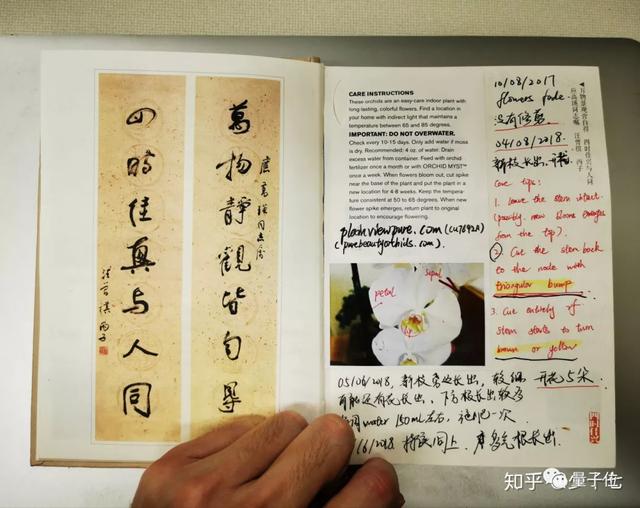 萬物靜觀皆自得
應高瑾同志屬
四時佳興与人同
汪曾祺 丙子
CARE INSTRUCTIONS
These orchids are an easy-care indoor plant with
long-lasting, colorful flowers. Find a location in
your home with indirect light that maintains a
temperature between 65 and 85 degrees.
IMPORTANT: DO NOT OVERWATER.
Check every 10-15 days. Only add water if moss
is dry. Recommended: 4 oz. of water. Drain
excess water from container. Feed with orchid
fertilizer once a month or with ORCHID MYST™
once a week. When flowers bloom out, cut spike
near the base of the plant and put the plant in a
new location for 4-8 weeks. Keep the temperature
consistent at 50 to 65 degrees. When
new flower spike emerges, return plant to
original location to encourage flowering.
(purebeautyorchids.com).
petal
sepal
lip
万物静观皆自得 四时佳兴与人同
汪曾祺 丙子
10/08/2017
flowers fade.
没有修剪
04/08/2018.
新枝长出,
Care tips:
1. Leave the stem intact.
(possibly new bloom emerges
from the top).
2. Cut the stem back
to the node with
triangular bump
3. Cut entirely if
stem starts to turn
brown or yellow
05/06/2018, 长出, 较细 开花5朵
长出, 下方根长出较多
water 150ml左右, 一次
/6/2018 持续同上, 长出.
四时佳兴
知乎 @量子位